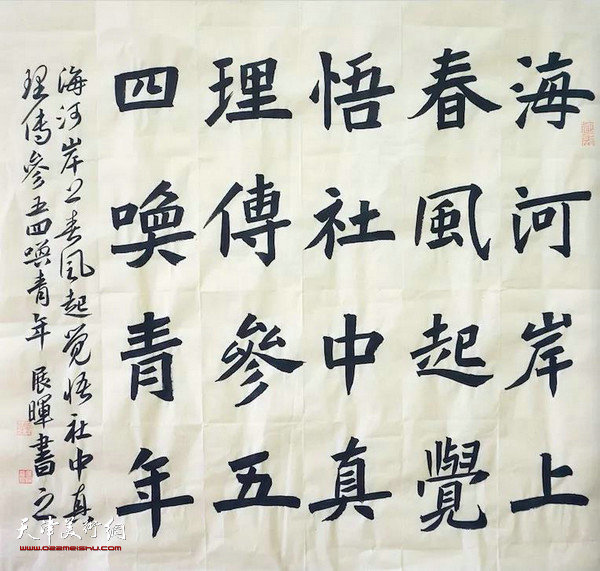 海河岸上
春風起覺
悟社中真
理傳參五
四喚青年
海河岸上春风起觉悟社中真
理傳參五四喚青年 展暉書之
天津美术网
www.022meishu.com